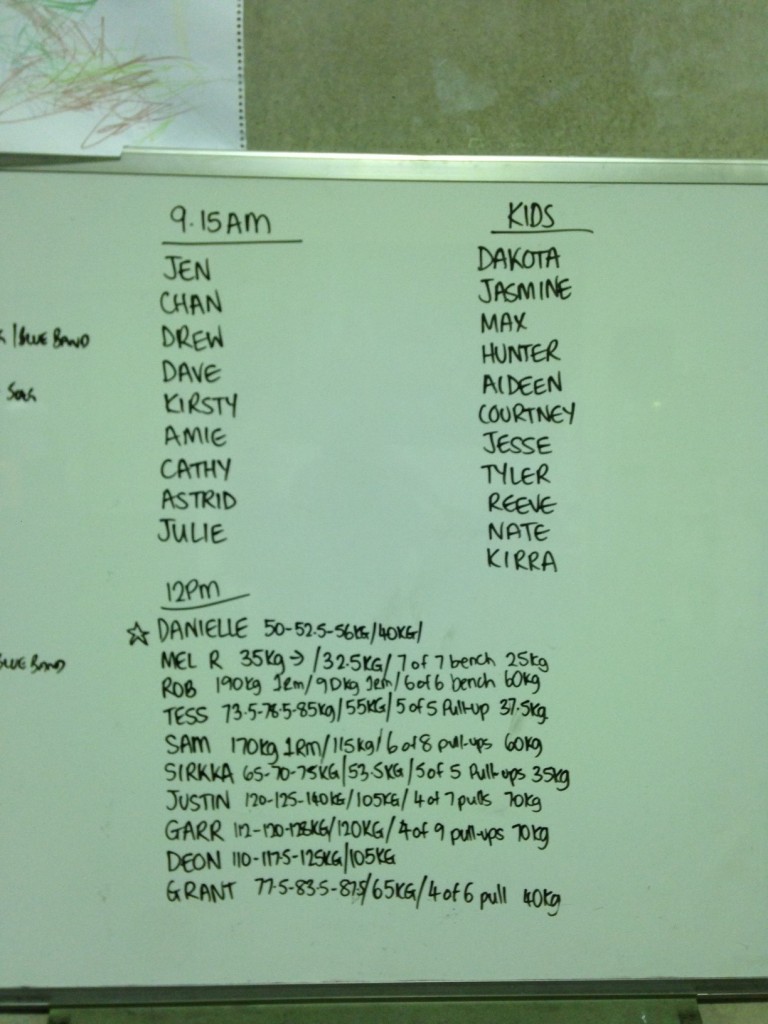 9.15AM
JEN
CHAN
DREW
DAVE
KIRSTY
AMIE
CATHY
ASTRID
JULIE
KIDS
DAKOTA
JASMINE
MAX
HUNTER
AIDEEN
COURTNEY
JESSE
TYLER
REEVE
NATE
KIRRA
/BLUE BAND
BLUE BAND
12PM
☆ DANIELLE 50-52.5-56KG/40KG/
MEL R 35Kg → /32.5KG/7 of 7 bench 25kg
ROB 190kg 1rm/90kg 1rm/6 of 6 bench 60kg
TESS 73.5-78.5-85kg/55KG/5 of 5 Pull-up 37.5kg
SAM 170kg 1RM/115kg/6 of 8 pull-ups 60kg
SIRKKA 65-70-75KG/53.5KG/5 of 5 Pull-ups 35kg
JUSTIN 120-125-140KG/105KG/4 of 7 pulls 70kg
GARR 112-120-128KG/120KG/4 of 9 pull-ups 70kg
DEON 110-117.5-125KG/105KG
GRANT 77.5-83.5-87.5/65KG/4 of 6 pull 40kg